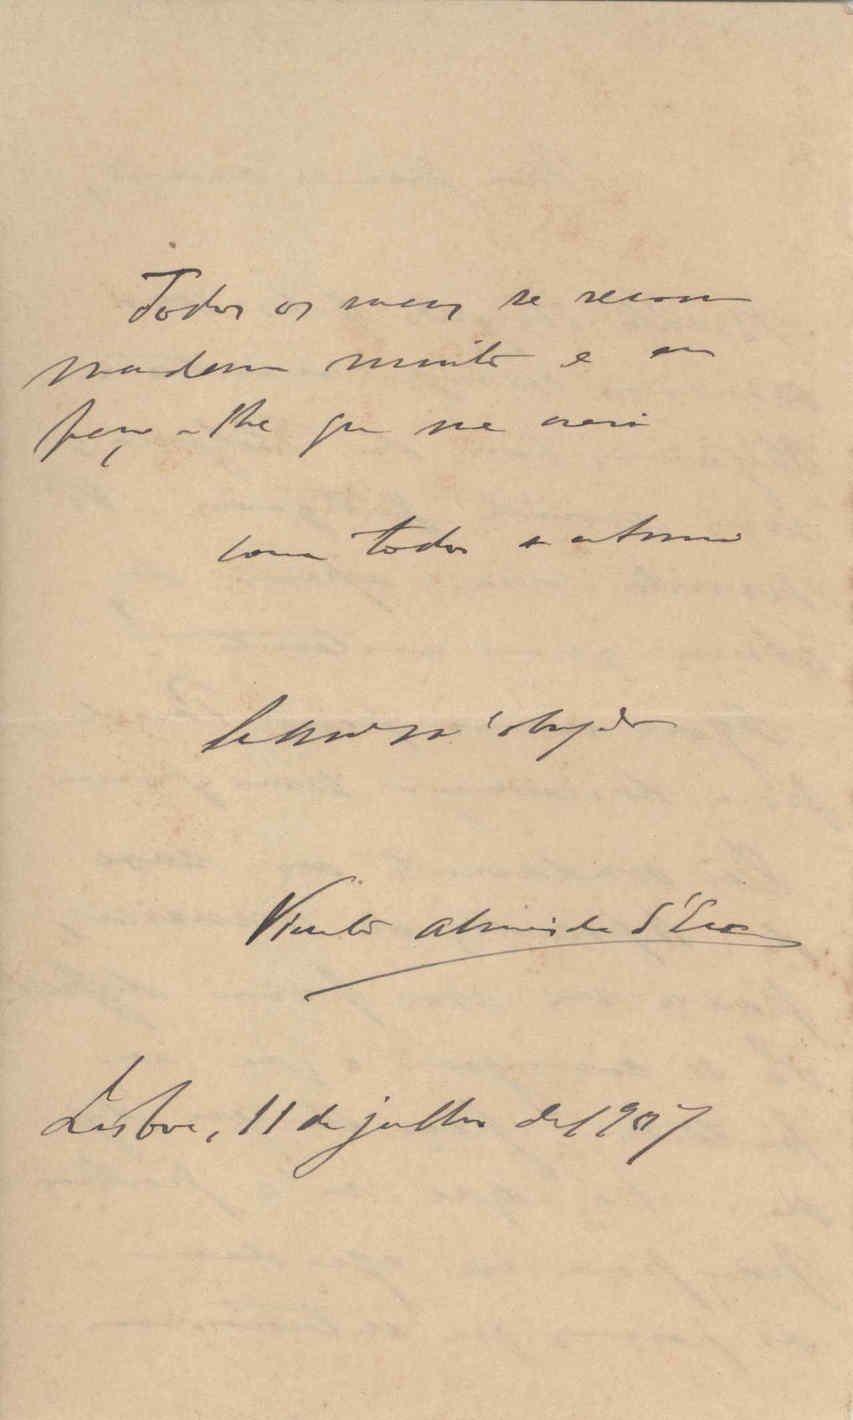 Todos os meus se recom
mendam muito e eu
peço-lhe que me creia
com toda a estima
Vicente Almeida d'Eça
Lisboa, 11 de julho de 1907